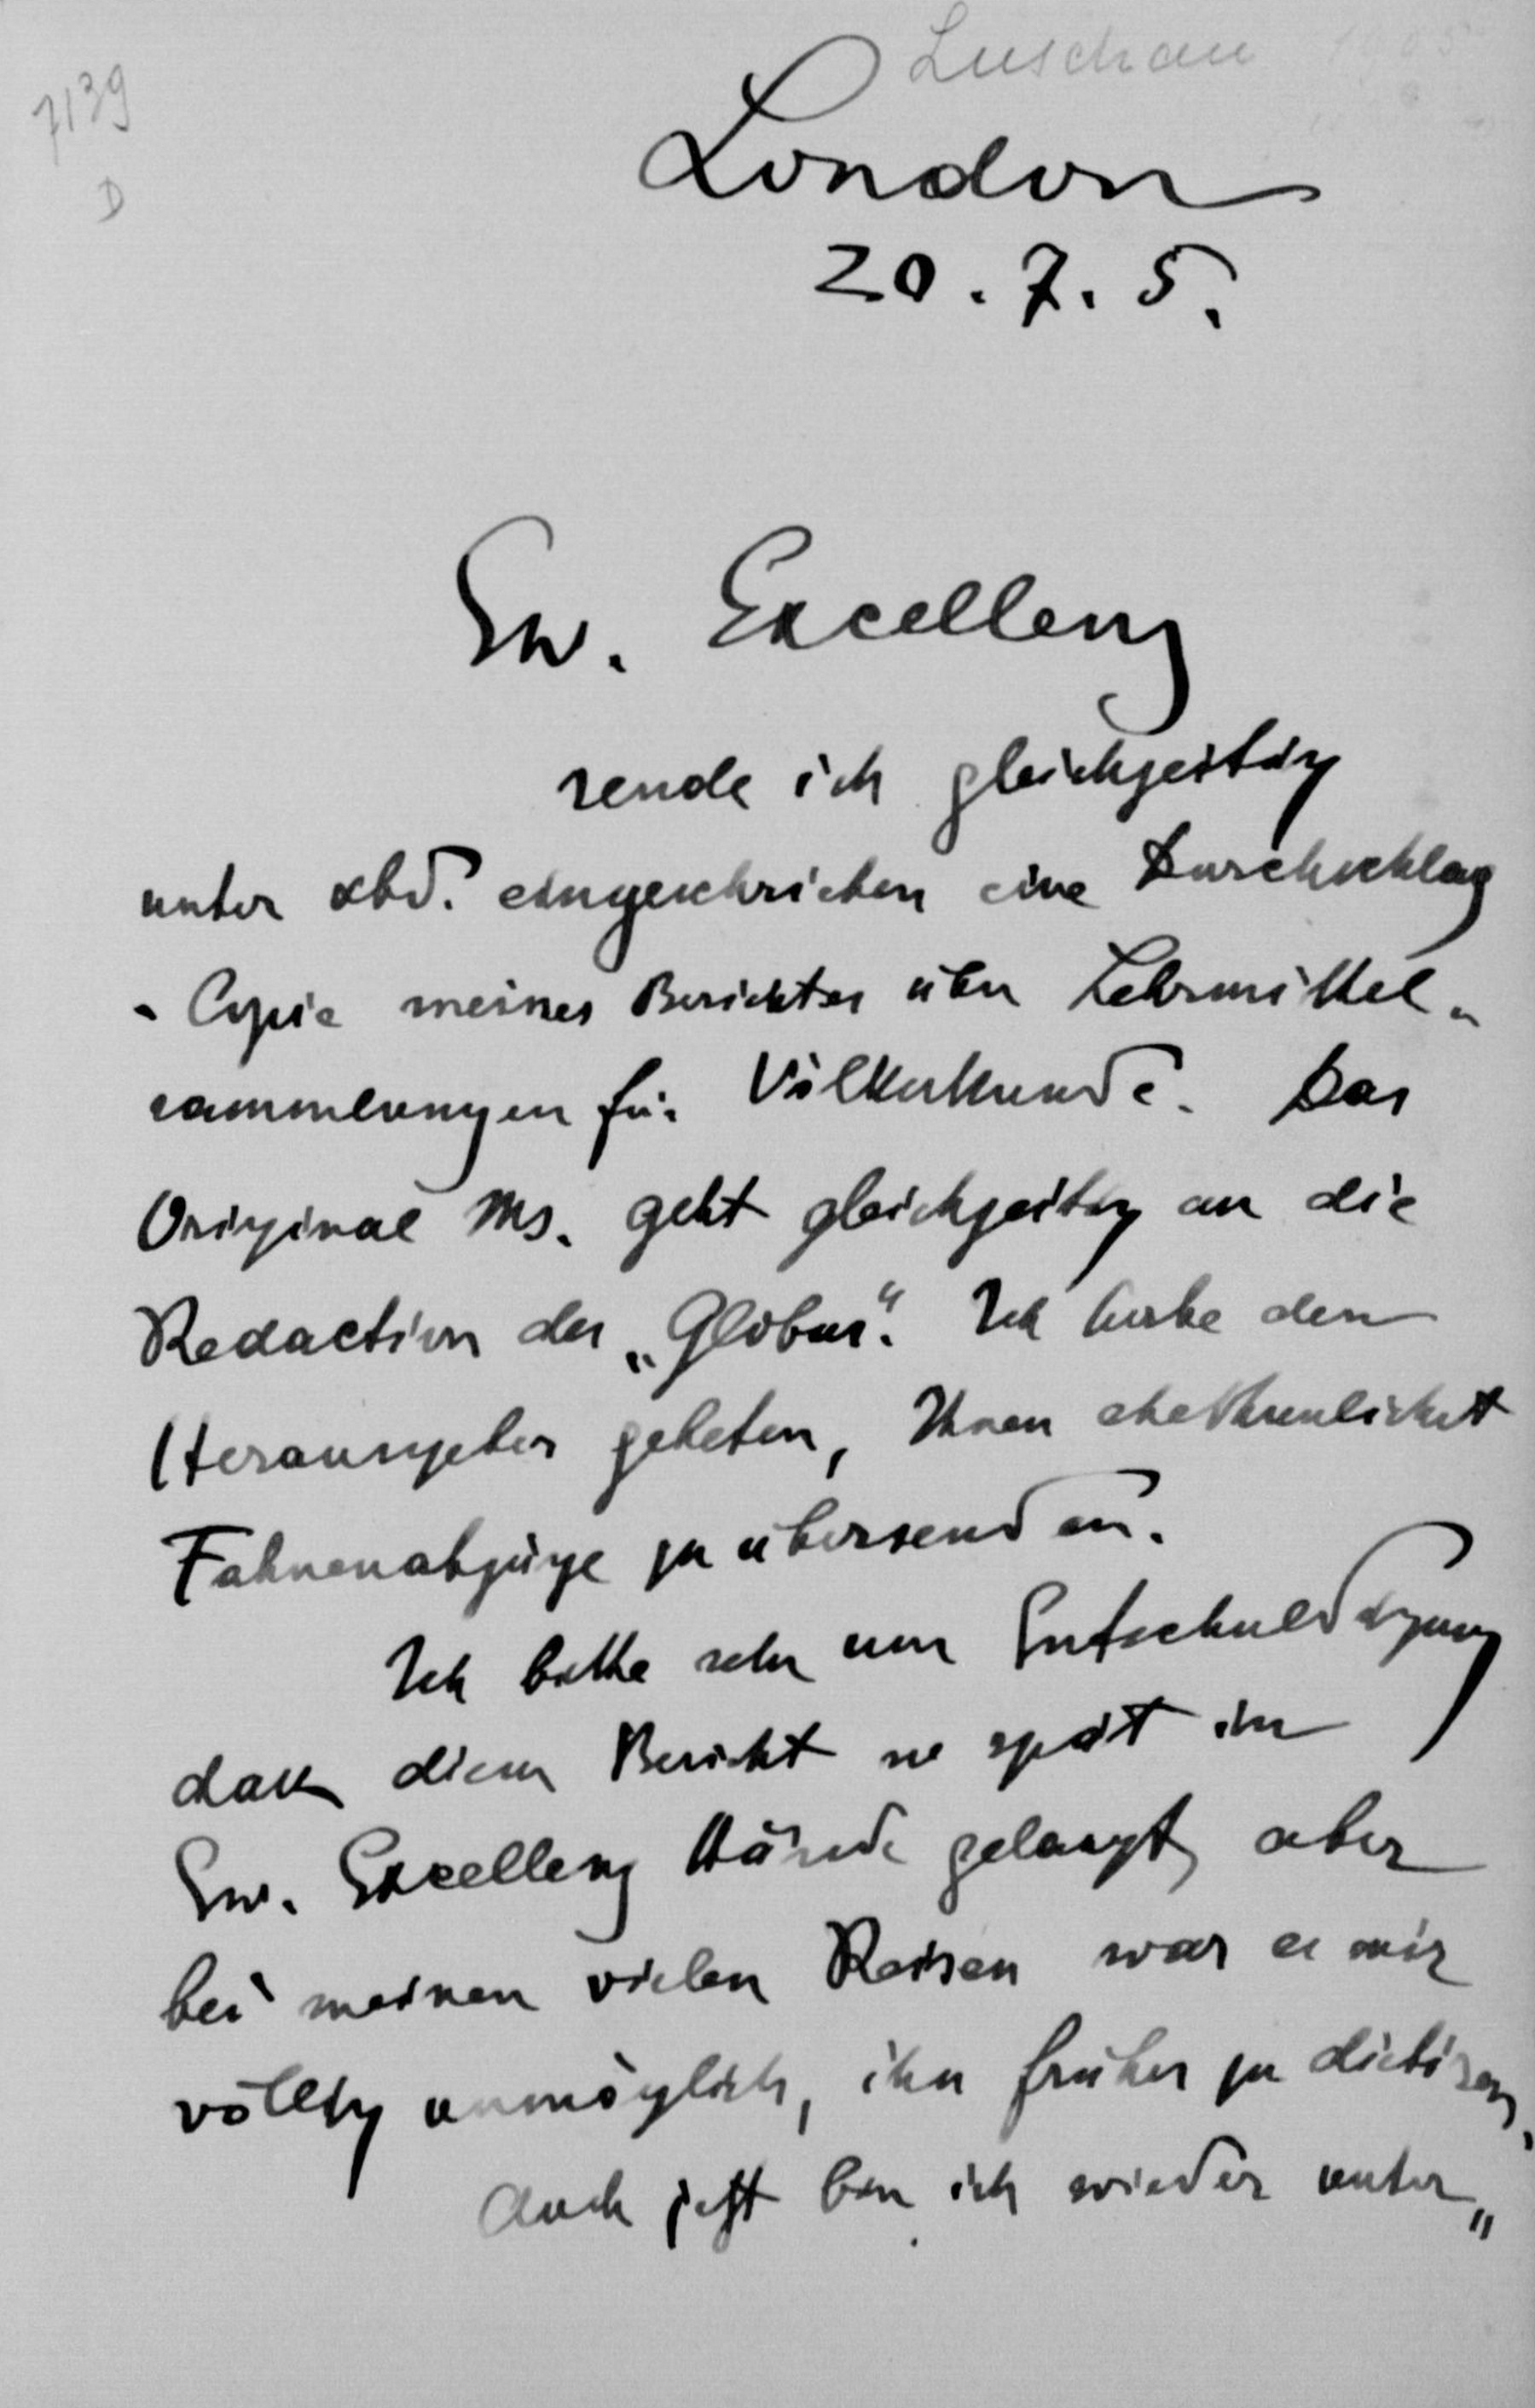 Luschau 1905
7139
D
London
20. 7. 5.
Ew. Excellenz
sende ich gleichzeitig
unter xbd. eingeschrieben eine Durchschlag
- Copie meines Berichtes über Lehrmittel-
sammlungen für Völkerkunde. Das
Original Ms. geht gleichzeitig an die
Redaction des „Globus“. Ich habe den
Herausgeber gebeten, Ihnen ehethunlichst
Fahnenabzüge zu übersenden.
Ich bitte sehr um Entschuldigung
dass dieser Bericht so spät in
Ew. Excellenz Hände gelangt, aber
bei meinen vielen Reisen war es mir
völlig unmöglich, ihn früher zu dictiren.
Auch jetzt bin ich wieder unter„